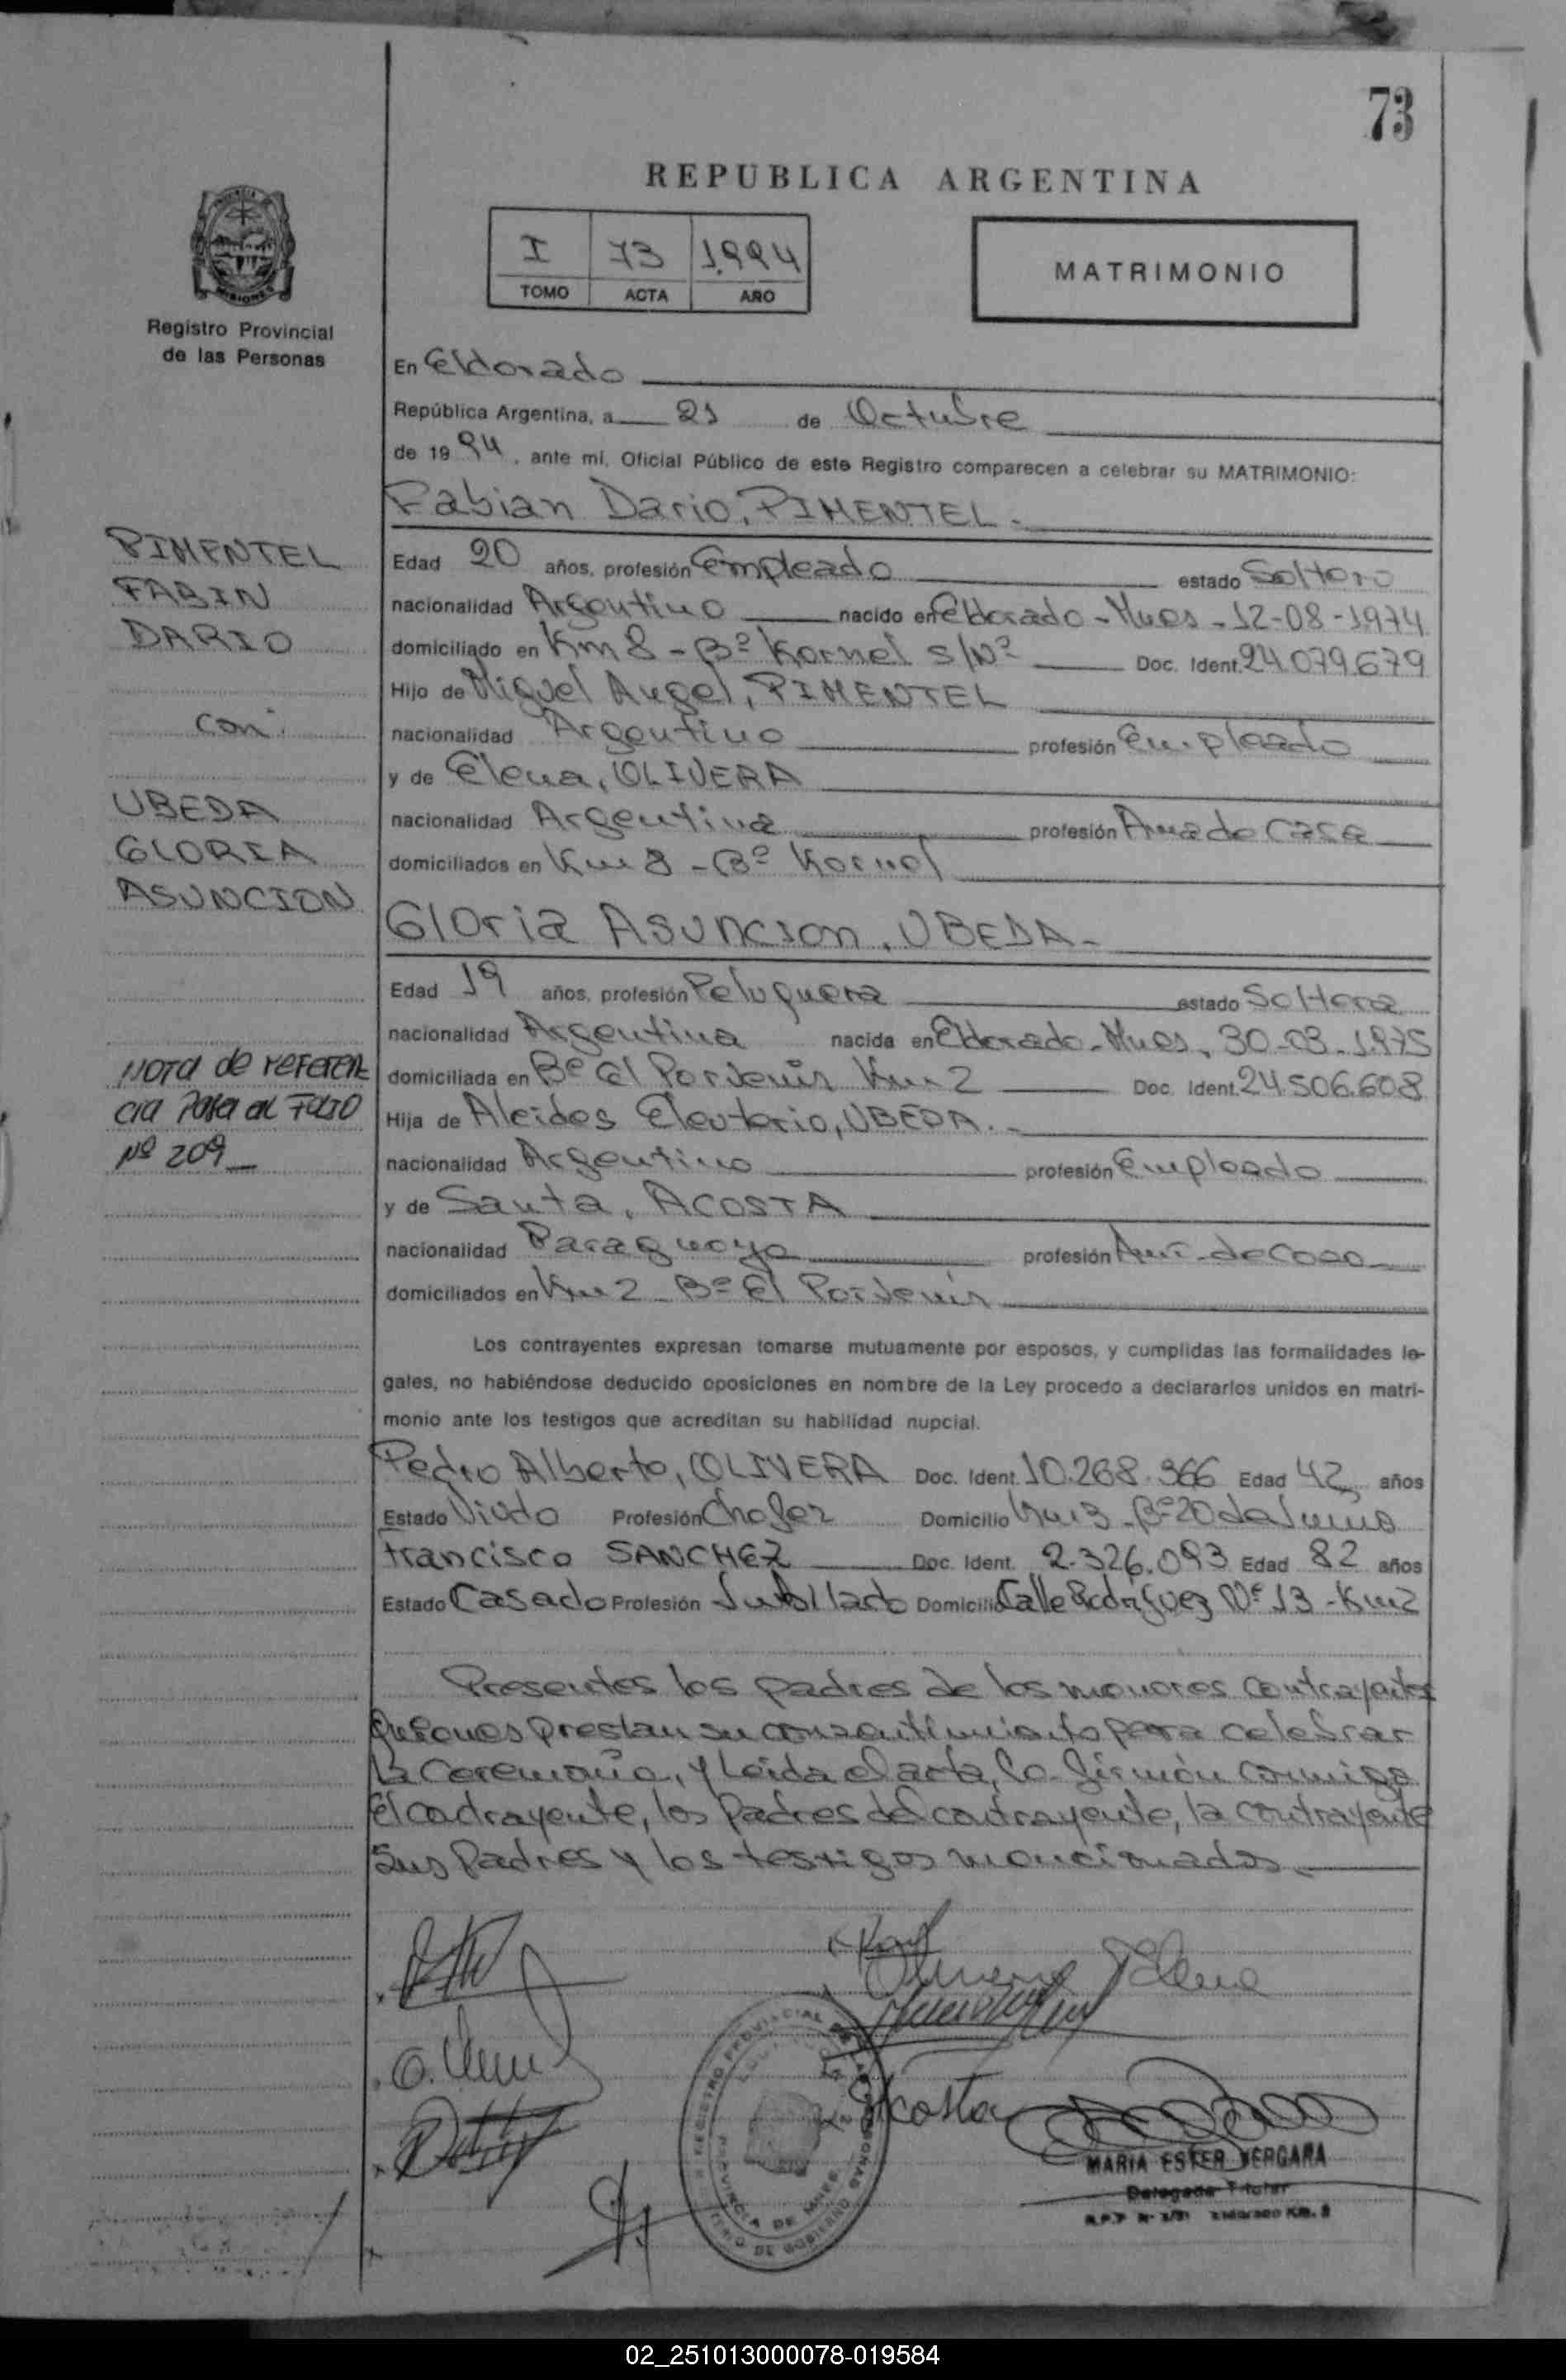 73
REPUBLICA ARGENTINA
I 73 1.994
TOMO ACTA AÑO
MATRIMONIO
Registro Provincial
de las Personas
En Eldorado
República Argentina, a 21 de Octubre
de 1994, ante mí, Oficial Público de este Registro comparecen a celebrar su MATRIMONIO:
Fabian Dario, PIMENTEL.-
PIMENTEL
FABIN
DARIO
con:
UBEDA
GLORIA
ASUNCION
Edad 20 años, profesión Empleado estado Soltero
nacionalidad Argentino nacido en Eldorado - Mnes - 12-08-1.974
domiciliado en Km 8 - Bº Kornel s/Nº Doc. Ident. 24.079.679
Hijo de Miguel Angel, PIMENTEL
nacionalidad Argentino profesión Empleado
y de Elena, OLIVERA
nacionalidad Argentina profesión Ama de Casa
domiciliados en Km 8 - Bº Kornel
Gloria Asuncion, UBEDA-
Edad 19 años, profesión Peluquera estado Soltera
nacionalidad Argentina nacida en Eldorado - Mnes, 30-03-1.975
domiciliada en Bº El Porvenir Km 2 Doc. Ident. 24.506.608
Hija de Alcides Eleuterio, UBEDA.-
nacionalidad Argentino profesión Empleado
y de Santa, ACOSTA
nacionalidad Paraguaya profesión Ama de Casa
domiciliados en Km 2 - Bº El Porvenir
NOTA de REFEREN
CIA PASA al FOLIO
Nº 209
Los contrayentes expresan tomarse mutuamente por esposos, y cumplidas las formalidades le-
gales, no habiéndose deducido oposiciones en nombre de la Ley procedo a declararlos unidos en matri-
monio ante los testigos que acreditan su habilidad nupcial.
Pedro Alberto, OLIVERA Doc. Ident. 10.268.366 Edad 42 años
Estado Viudo Profesión Chofer Domicilio Km 3 - Bº 20 de Junio
Francisco SANCHEZ Doc. Ident. 2.326.093 Edad 82 años
Estado Casado Profesión Jubilado Domicilio Calle Rodriguez Nº 13 - Km 2
Presentes los padres de los menores contrayentes
quienes prestan su consentimiento para celebrar
la ceremonia, y leida el acta, la firman conmigo
el contrayente, los padres del contrayente, la contrayente
sus padres y los testigos mencionados.
Olivera Elena
Acosta
REGISTRO PROVINCIAL DE LAS PERSONAS
PROVINCIA DE MNES.
MINISTERIO DE GOBIERNO
MARIA ESTER VERGARA
Delegada Titular
02_251013000078-019584